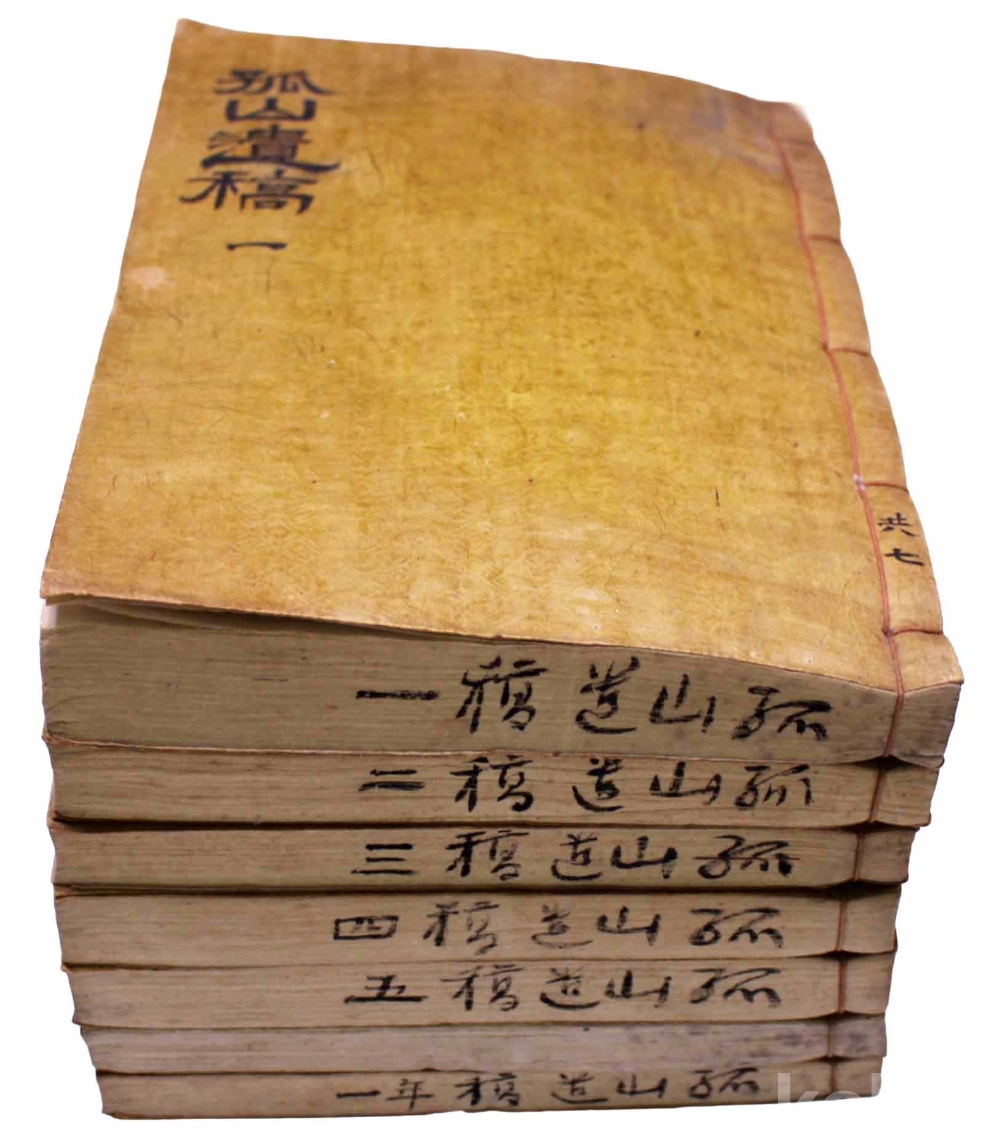 孤山遺稿 一
共七
孤山遺稿一
孤山遺稿二
孤山遺稿三
孤山遺稿四
孤山遺稿五
孤山遺稿年一